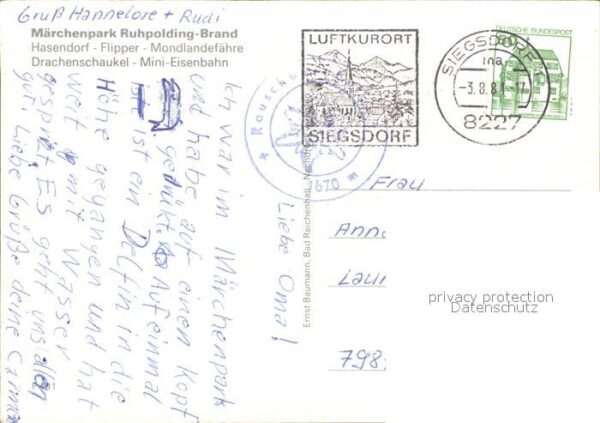 Gruß Hannelore + Rudi
Märchenpark Ruhpolding-Brand
Hasendorf - Flipper - Mondlandefähre
Drachenschaukel - Mini-Eisenbahn
LUFTKURORT
SIEGSDORF
SIEGSDORF 1
-3.8.8
8227
DEUTSCHE BUNDESPOST
Rausch
1670 m
Liebe Oma!
Ich war im Märchenpark
und habe auf einen Kopf
gedrükt. Auf einmal
ist ein Delfin in die
Höhe gegangen und hat
weit mit Wasser
gespritzt. Es geht uns allen
gut. Liebe Grüße deine
Ernst Baumann, Bad Reichenhall
Frau
Anna
Lau
798
privacy protection
Datenschutz